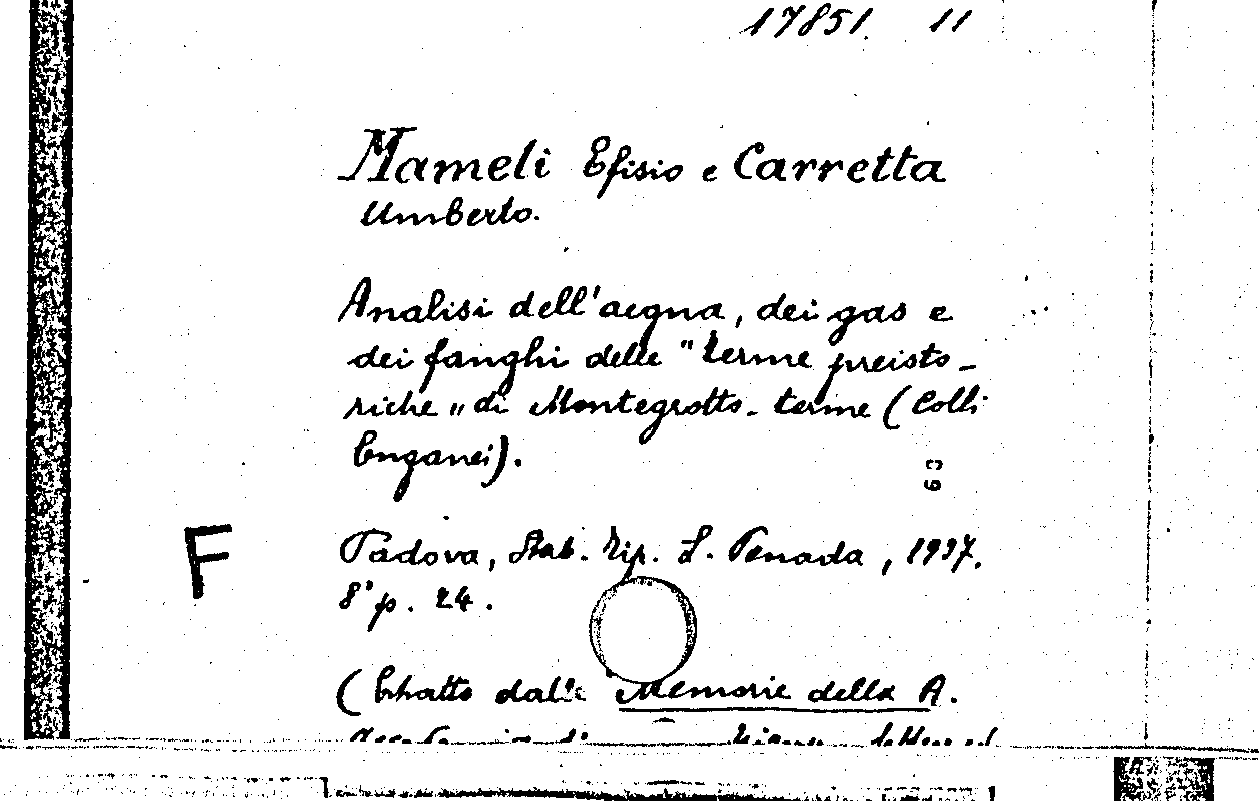 17851 11
Mameli Efisio e Carretta
Umberto.
Analisi dell'acqua, dei gas e
dei fanghi delle "terme preisto-
riche" di Montegrotto-terme (Colli
Euganei).
63
F
Padova, Stab. Tip. L. Penada, 1937.
8° p. 24.
(Estratto dalle Memorie della R.